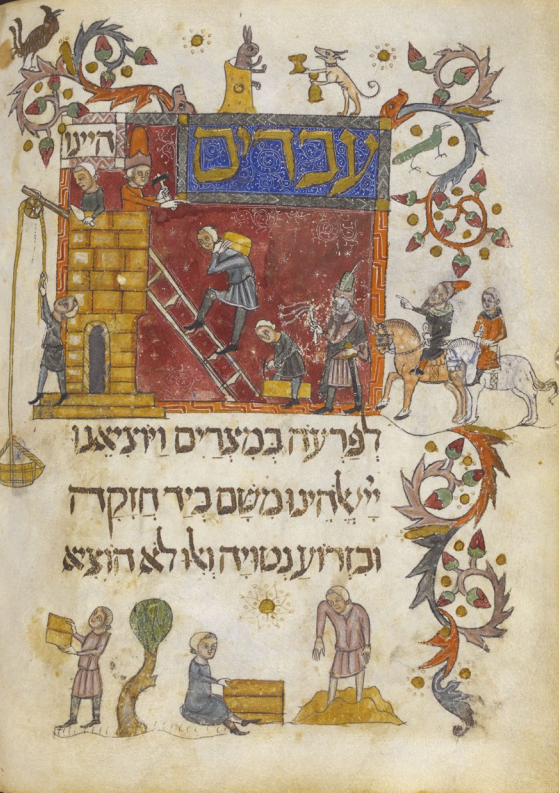 עֲבָדִים
הָיִינוּ
לְפַרְעֹה בְּמִצְרַיִם וַיּוֹצִיאֵנוּ
יְיָ אֱלֹהֵינוּ מִשָּׁם בְּיָד חֲזָקָה
וּבִזְרוֹעַ נְטוּיָה וְאִלּוּ לֹא הוֹצִיא